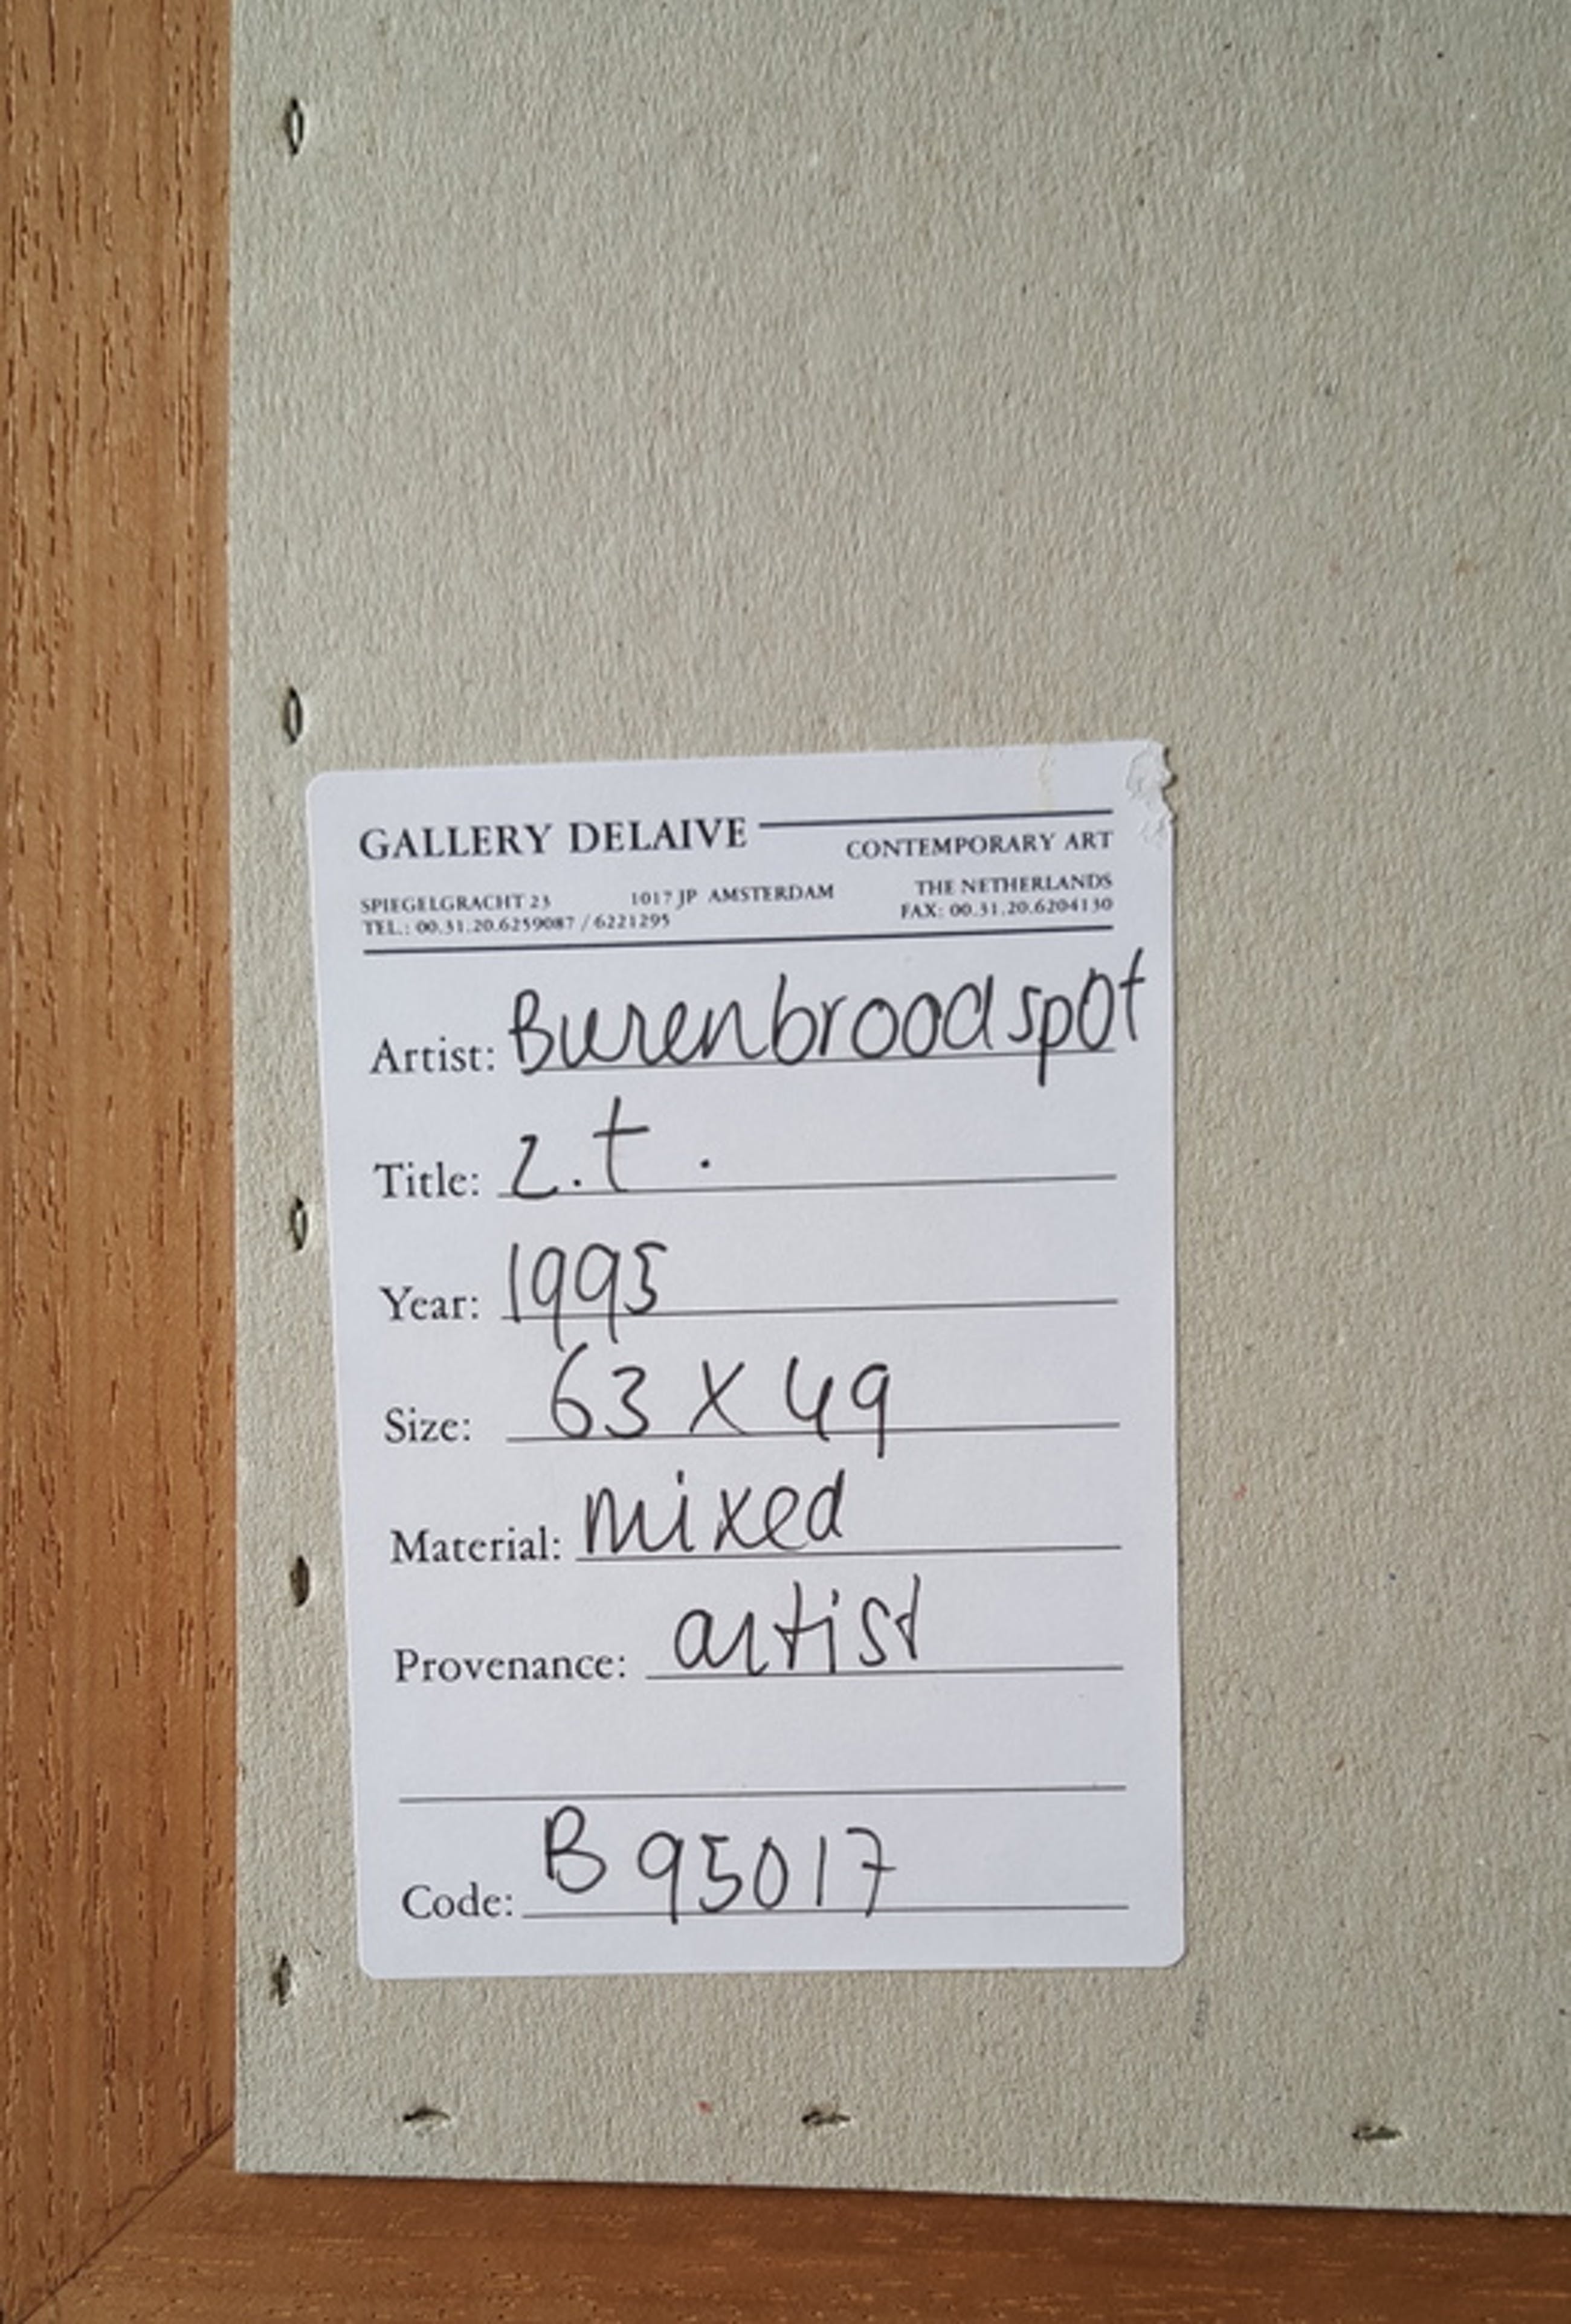 GALLERY DELAIVE
CONTEMPORARY ART
SPIEGELGRACHT 23 1017 JP AMSTERDAM THE NETHERLANDS
TEL.: 00.31.20.6259087 / 6221295 FAX: 00.31.20.6204130
Artist: Burenbroodspot
Title: z.t.
Year: 1995
Size: 63 X 49
Material: mixed
Provenance: artist
Code: B 95017